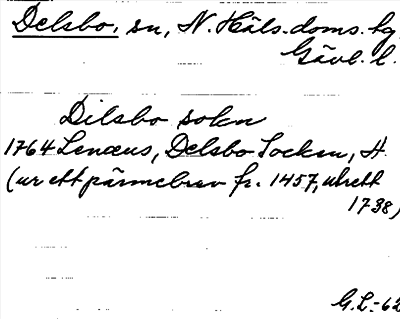 Delsbo, sn, N. Häls. doms. hg
Gävl. l.
Dilsbo sokn
1764 Lenæus, Delsbo Socken, H.
(ur ett pärmebrev fr. 1457, utrett
1738)
G.L.-62